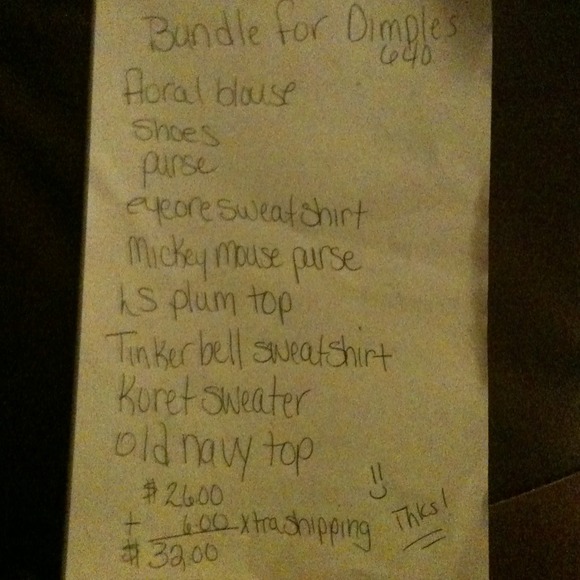 Bundle for Dimples
640
floral blouse
shoes
purse
eyeore sweatshirt
Mickey mouse purse
LS plum top
Tinkerbell sweatshirt
Koret sweater
old navy top
$ 26.00
+ 6.00 xtra shipping
$ 32.00
Thks!